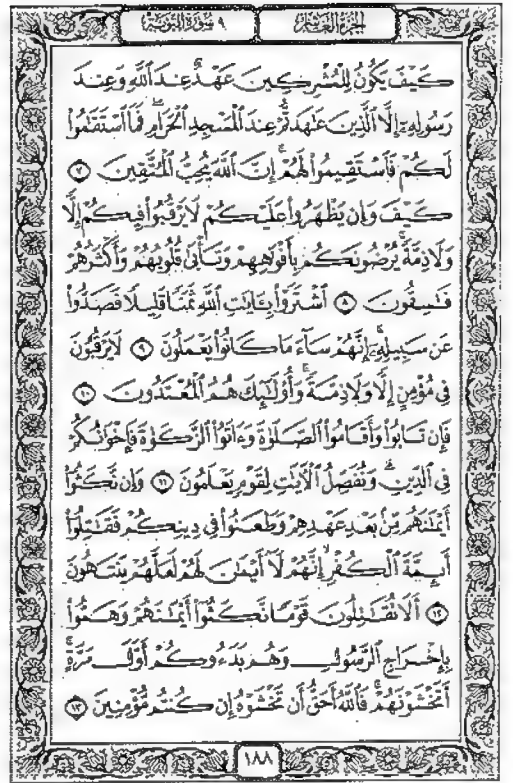 الجزء العاشر
٩ سورة التوبة
كَيْفَ يَكُونُ لِلْمُشْرِكِينَ عَهْدٌ عِندَ ٱللَّهِ وَعِندَ
رَسُولِهِۦٓ إِلَّا ٱلَّذِينَ عَٰهَدتُّمْ عِندَ ٱلْمَسْجِدِ ٱلْحَرَامِ ۖ فَمَا ٱسْتَقَٰمُوا۟
لَكُمْ فَٱسْتَقِيمُوا۟ لَهُمْ ۚ إِنَّ ٱللَّهَ يُحِبُّ ٱلْمُتَّقِينَ ٧
كَيْفَ وَإِن يَظْهَرُوا۟ عَلَيْكُمْ لَا يَرْقُبُوا۟ فِيكُمْ إِلًّا
وَلَا ذِمَّةً ۚ يُرْضُونَكُم بِأَفْوَٰهِهِمْ وَتَأْبَىٰ قُلُوبُهُمْ وَأَكْثَرُهُمْ
فَٰسِقُونَ ٨ ٱشْتَرَوْا۟ بِـَٔايَٰتِ ٱللَّهِ ثَمَنًا قَلِيلًا فَصَدُّوا۟
عَن سَبِيلِهِۦٓ ۚ إِنَّهُمْ سَآءَ مَا كَانُوا۟ يَعْمَلُونَ ٩ لَا يَرْقُبُونَ
فِى مُؤْمِنٍ إِلًّا وَلَا ذِمَّةً ۚ وَأُو۟لَٰٓئِكَ هُمُ ٱلْمُعْتَدُونَ ١٠
فَإِن تَابُوا۟ وَأَقَامُوا۟ ٱلصَّلَوٰةَ وَءَاتَوُا۟ ٱلزَّكَوٰةَ فَإِخْوَٰنُكُمْ
فِى ٱلدِّينِ ۗ وَنُفَصِّلُ ٱلْـَٔايَٰتِ لِقَوْمٍ يَعْلَمُونَ ١١ وَإِن نَّكَثُوٓا۟
أَيْمَٰنَهُم مِّنۢ بَعْدِ عَهْدِهِمْ وَطَعَنُوا۟ فِى دِينِكُمْ فَقَٰتِلُوٓا۟
أَئِمَّةَ ٱلْكُفْرِ ۙ إِنَّهُمْ لَآ أَيْمَٰنَ لَهُمْ لَعَلَّهُمْ يَنتَهُونَ
١٢ أَلَا تُقَٰتِلُونَ قَوْمًا نَّكَثُوٓا۟ أَيْمَٰنَهُمْ وَهَمُّوا۟
بِإِخْرَاجِ ٱلرَّسُولِ وَهُم بَدَءُوكُمْ أَوَّلَ مَرَّةٍ ۚ
أَتَخْشَوْنَهُمْ ۚ فَٱللَّهُ أَحَقُّ أَن تَخْشَوْهُ إِن كُنتُم مُّؤْمِنِينَ ١٣
١٨٨